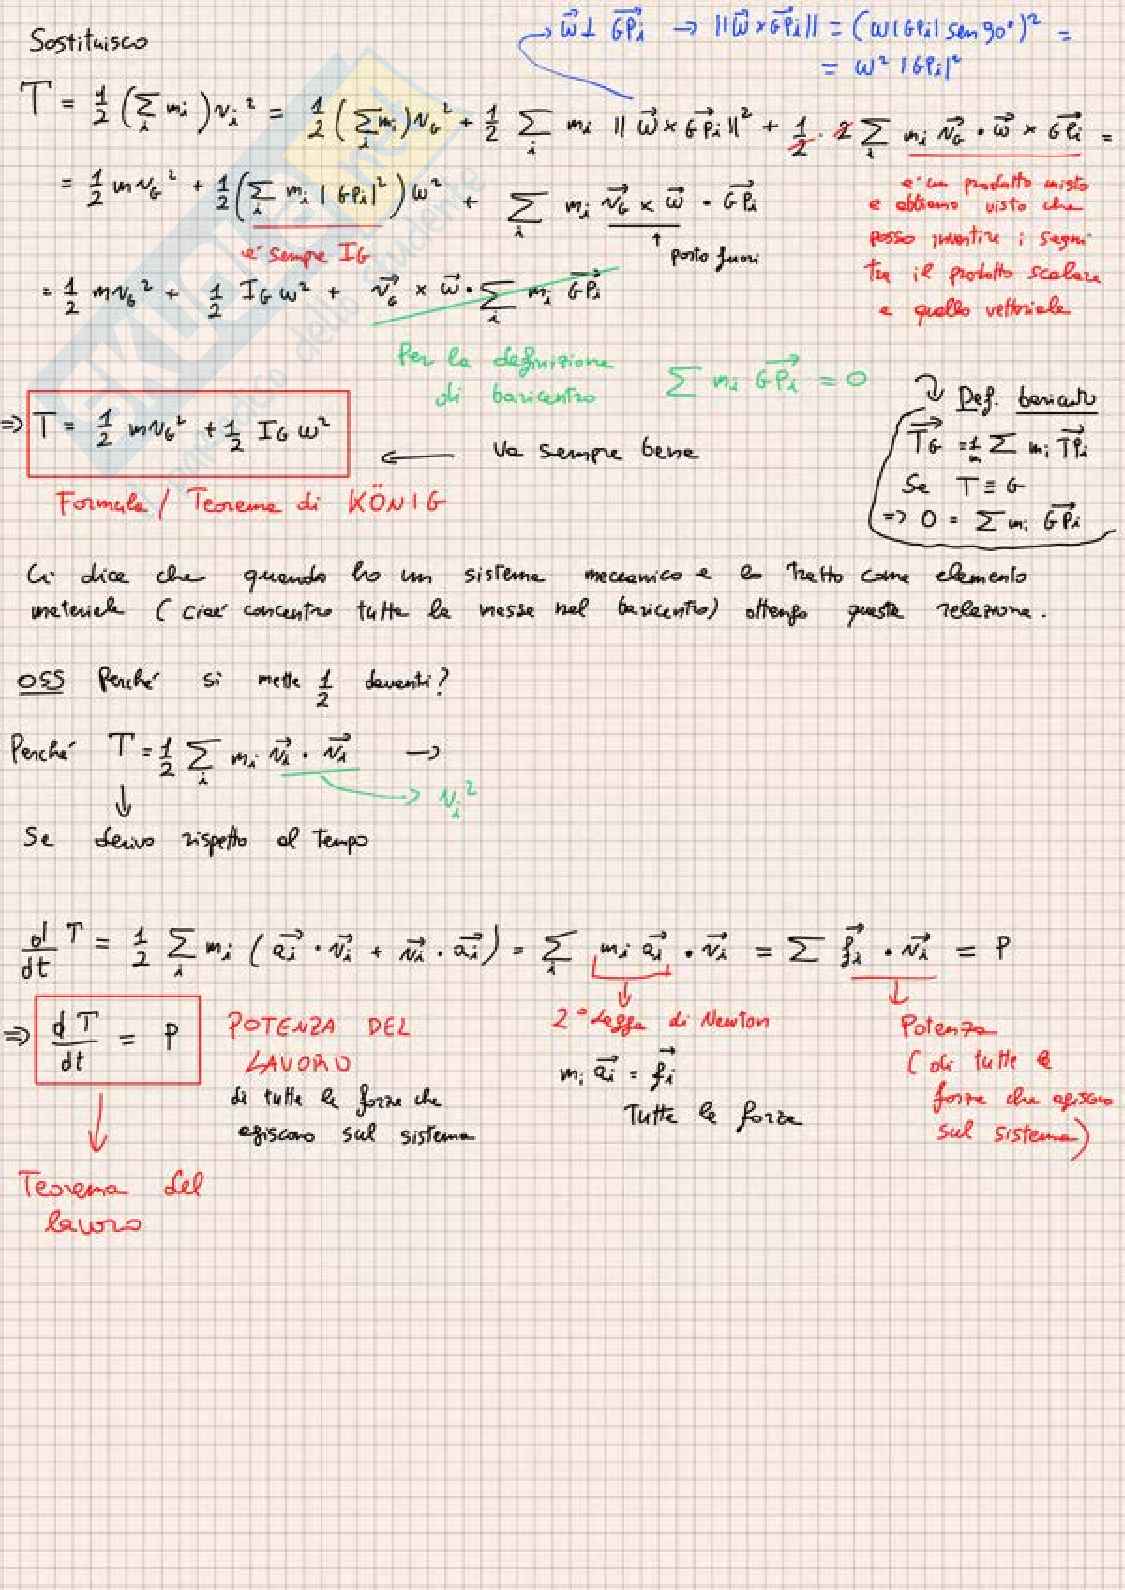 Sostituisco
ω⃗ ⊥ GPᵢ → ||ω⃗ × GPᵢ|| = (ω|GPᵢ| sen 90°)² =
= ω² |GPᵢ|²
T = 1/2 (∑ᵢ mᵢ) vᵢ² = 1/2 (∑ᵢ mᵢ) v_G² + 1/2 ∑ᵢ mᵢ ||ω⃗ × GPᵢ||² + 1/2 · 2 ∑ᵢ mᵢ v⃗_G · ω⃗ × GPᵢ =
= 1/2 m v_G² + 1/2 (∑ᵢ mᵢ |GPᵢ|²) ω² + ∑ᵢ mᵢ v⃗_G × ω⃗ · GPᵢ
è sempre I_G
↑ porto fuori
è un prodotto misto
e abbiamo visto che
posso invertire i segni
tra il prodotto scalare
e quello vettoriale
= 1/2 m v_G² + 1/2 I_G ω² + v⃗_G × ω⃗ · ∑ᵢ mᵢ GPᵢ
Per la definizione
di baricentro ∑ mᵢ GPᵢ = 0
⇒ T = 1/2 m v_G² + 1/2 I_G ω² ← Va sempre bene
Formula / Teorema di KÖNIG
Def. baricentro
TG = 1/m ∑ mᵢ TPᵢ
Se T ≡ G
⇒ 0 = ∑ mᵢ GPᵢ
Ci dice che quando ho un sistema meccanico e lo tratto come elemento
materiale (cioè concentro tutta la massa nel baricentro) ottengo questa relazione.
OSS Perché si mette 1/2 davanti?
Perché T = 1/2 ∑ᵢ mᵢ v⃗ᵢ · v⃗ᵢ →
→ vᵢ²
↓
Se derivo rispetto al tempo
d/dt T = 1/2 ∑ᵢ mᵢ (a⃗ᵢ · v⃗ᵢ + v⃗ᵢ · a⃗ᵢ) = ∑ᵢ mᵢ a⃗ᵢ · v⃗ᵢ = ∑ f⃗ᵢ · v⃗ᵢ = P
⇒ dT/dt = P
POTENZA DEL
LAVORO
di tutte le forze che
agiscono sul sistema
2° Legge di Newton
mᵢ a⃗ᵢ = f⃗ᵢ
Tutte le forze
Potenza
(di tutte le
forze che agiscono
sul sistema)
Teorema del
lavoro
SKUOLA.net